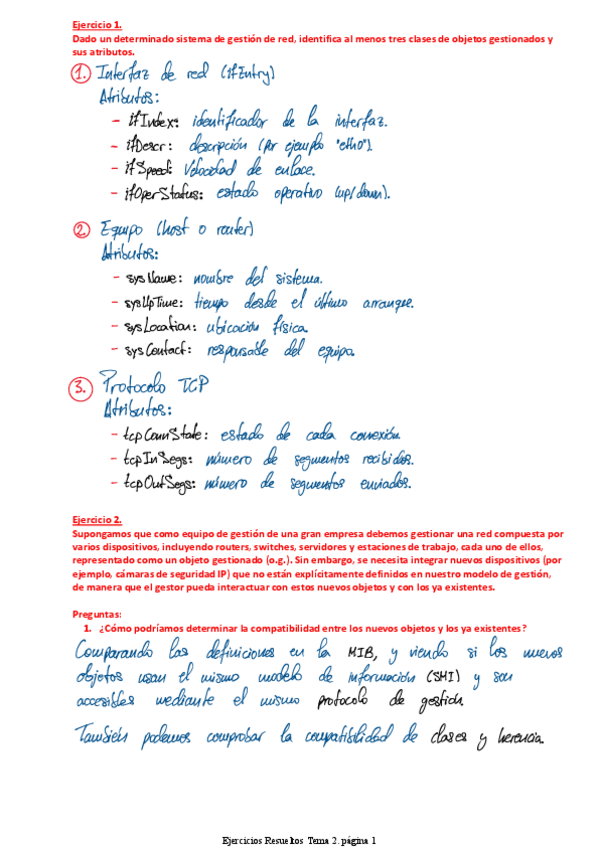 Ejercicio 1.
Dado un determinado sistema de gestión de red, identifica al menos tres clases de objetos gestionados y
sus atributos.
1. Interfaz de red (ifEntry)
Atributos:
- ifIndex: identificador de la interfaz.
- ifDescr: descripción (por ejemplo "eth0").
- ifSpeed: Velocidad de enlace.
- ifOperStatus: estado operativo (up/down).
2. Equipo (host o router)
Atributos:
- sysName: nombre del sistema.
- sysUpTime: tiempo desde el último arranque.
- sysLocation: ubicación física.
- sysContact: responsable del equipo.
3. Protocolo TCP
Atributos:
- tcpConnState: estado de cada conexión.
- tcpInSegs: número de segmentos recibidos.
- tcpOutSegs: número de segmentos enviados.
Ejercicio 2.
Supongamos que como equipo de gestión de una gran empresa debemos gestionar una red compuesta por
varios dispositivos, incluyendo routers, switches, servidores y estaciones de trabajo, cada uno de ellos,
representado como un objeto gestionado (o.g.). Sin embargo, se necesita integrar nuevos dispositivos (por
ejemplo, cámaras de seguridad IP) que no están explícitamente definidos en nuestro modelo de gestión,
de manera que el gestor pueda interactuar con estos nuevos objetos y con los ya existentes.
Preguntas:
1. ¿Cómo podríamos determinar la compatibilidad entre los nuevos objetos y los ya existentes?
Comparando las definiciones en la MIB, y viendo si los nuevos
objetos usan el mismo modelo de información (SMI) y son
accesibles mediante el mismo protocolo de gestión.
También podemos comprobar la compatibilidad de clases y herencia.
Ejercicios Resueltos Tema 2. página 1